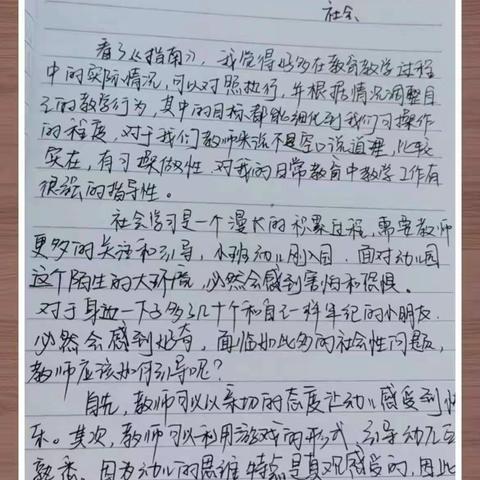 社会
看了《指南》，我觉得好多在教育教学过程
中的实际情况，可以对照执行，并根据情况调整自
己的教学行为，其中的目标都能细化到我们可操作
的程度，对于我们教师来说不是空口说道理，比较
实在，有可操做性，对我的日常教育中教学工作有
很强的指导性。
社会学习是一个漫长的积累过程，需要教师
更多的关注和引导，小班幼儿刚入园，面对幼儿园
这个陌生的大环境，必然会感到害怕和恨惧。
对于身边一下子多了几十个和自己一样年纪的小朋友，
必然会感到好奇，面临如此多的社会性问题，
教师应该如何引导呢？
首先，教师可以以亲切的态度让幼儿感受到快
乐。其次，教师可以利用游戏的形式，引导幼儿互
熟悉，因为幼儿的思维特点是直观感官的，因此